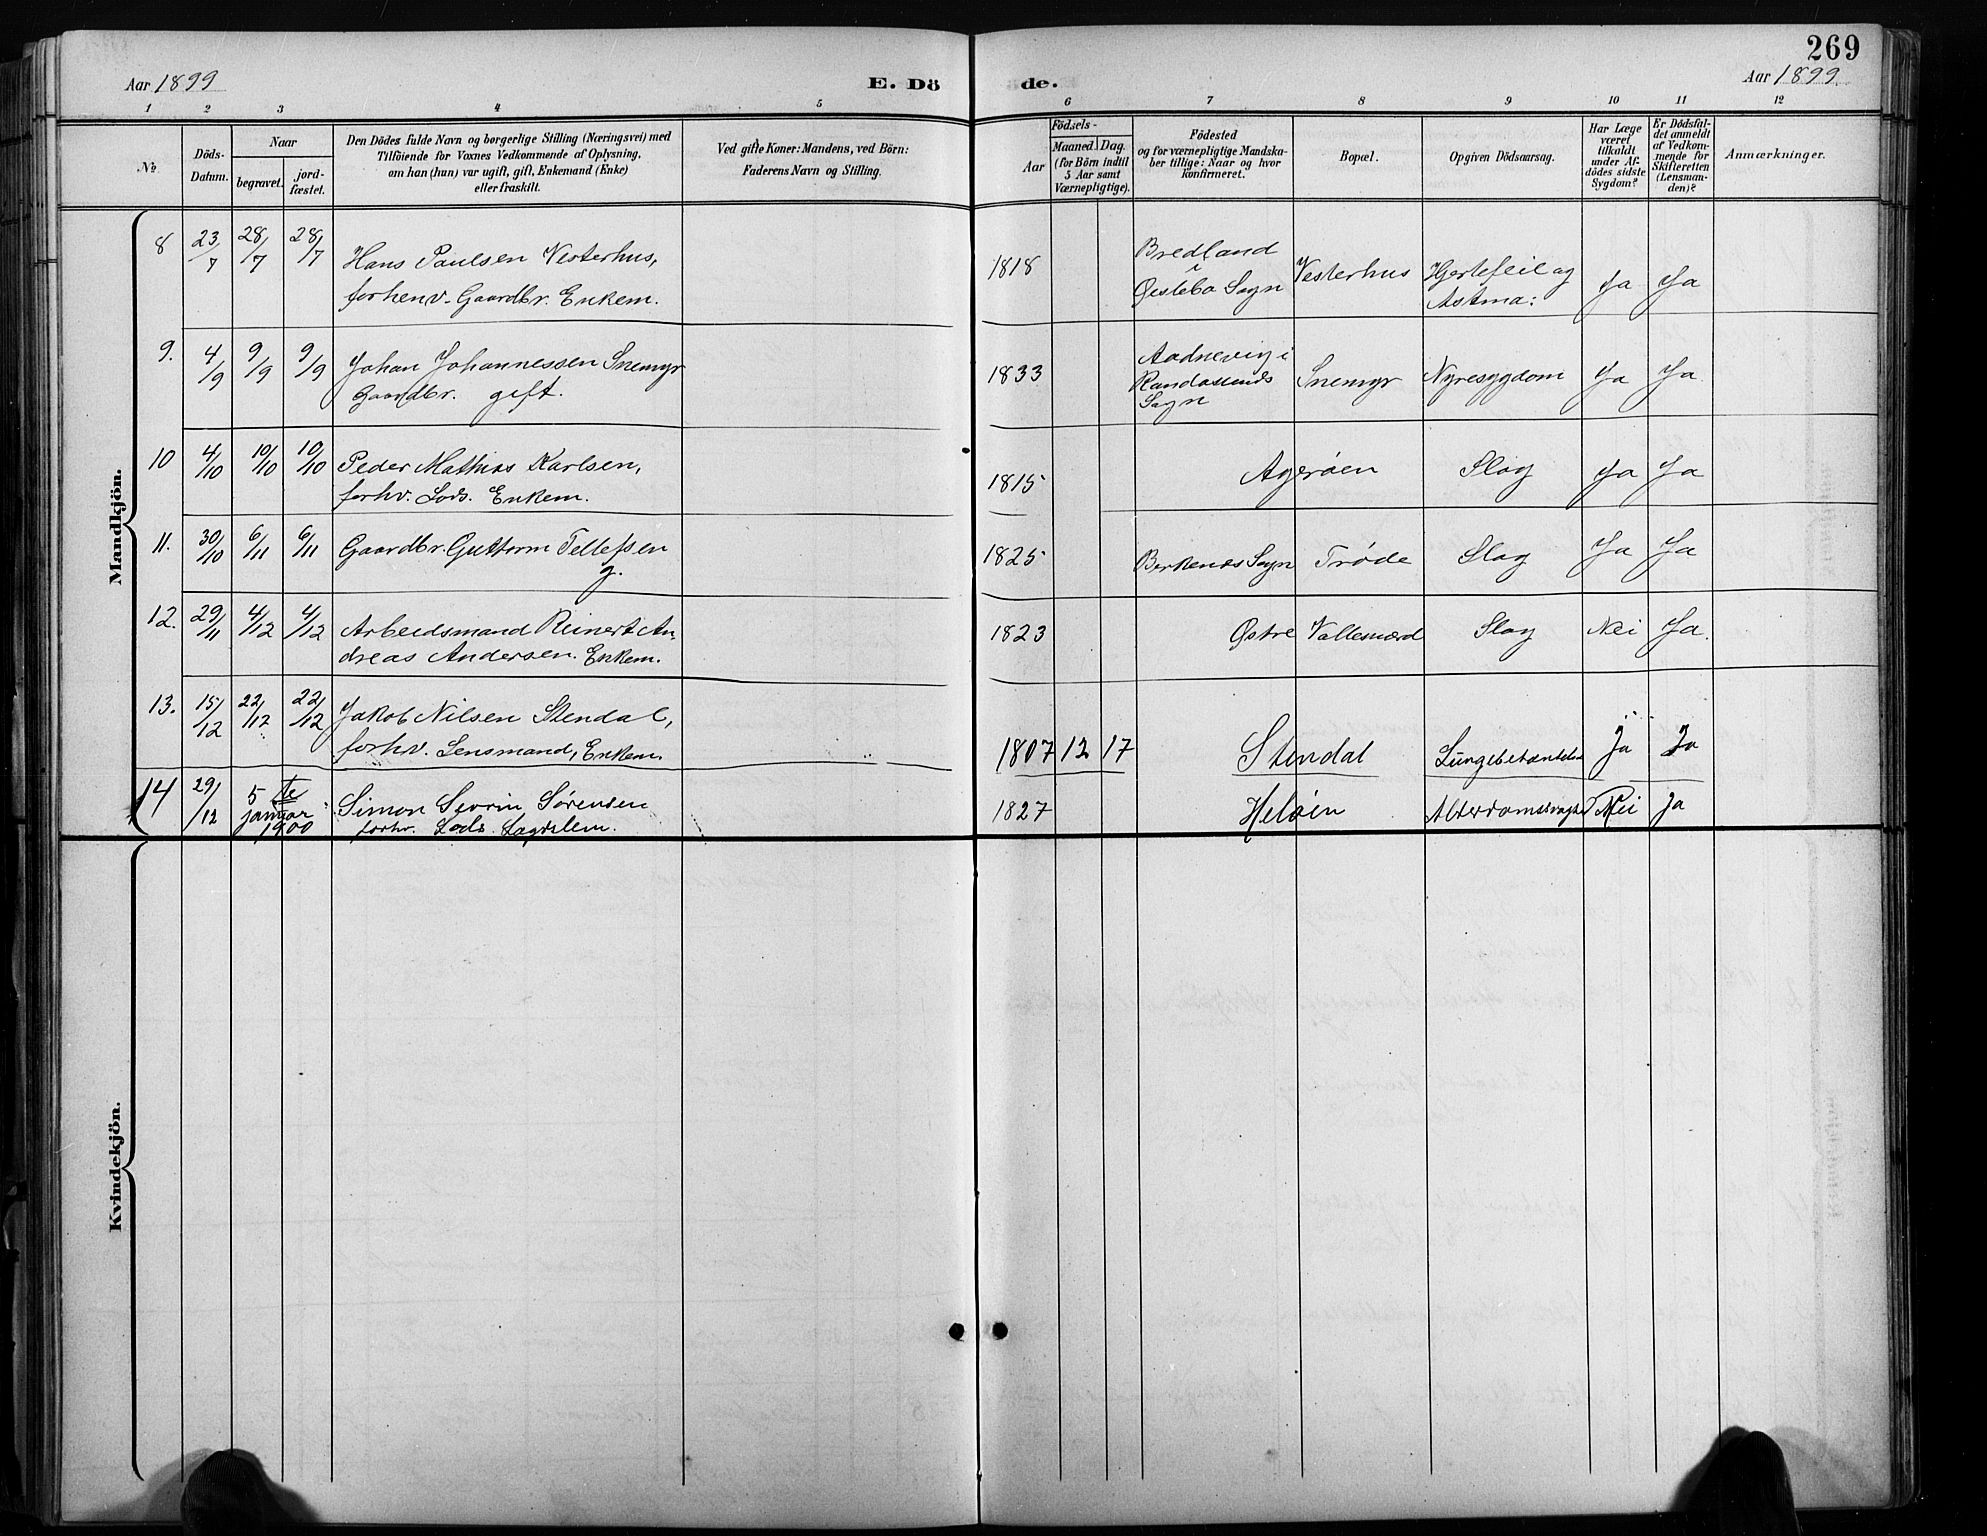 269
Aar 1899
E. Dö de.
Aar 1899
1 2 3 4 5 6 7 8 9 10 11 12
No.
Döds-
Datum.
Naar
begravet.
jord-
fæstet.
Den Dödes fulde Navn og borgerlige Stilling (Næringsvei) med
Tilföiende for Voxnes Vedkommende af Oplysning,
om han (hun) var ugift, gift, Enkemand (Enke)
eller fraskilt.
Ved gifte Koner: Mandens, ved Börn:
Faderens Navn og Stilling.
Födsels-
Aar
Maaned. Dag.
(for Börn indtil
5 Aar samt
Værnepligtige).
Födested
og for værnepligtige Mandska-
ber tillige: Naar og hvor
konfirmeret.
Bopæl.
Opgiven Dödsaarsag.
Har Læge
været
tilkaldt
under Af-
dödes sidste
Sygdom?
Er Dödsfal-
det anmeldt
af Vedkom-
mende for
Skifteretten
(Lensman-
den)?
Anmærkninger.
Mandkjön.
8 23/7 28/7 28/7 Hans Paulsen Vesterhus,
forhenv. Gaardbr. Enkem.
1818 Bredland
i
Øislebo Sogn Vesterhus Hjertefeil og
Astma: Ja Ja
9. 4/9 9/9 9/9 Johan Johannessen Snemyr
Gaardbr. gift.
1833 Aadnevig i
Randøsunds
Sogn Snemyr Nyresygdom Ja Ja
10 4/10 10/10 10/10 Peder Mathias Karlsen,
forhv. Lods. Enkem.
1815 Agerøen Slag Ja Ja
11. 30/10 6/11 6/11 Gaardbr. Guttorm Tellefsen
g.
1825 Berkenes Sogn Trøde Slag Ja Ja
12. 29/11 4/12 4/12 Arbeidsmand Reinert An-
dreas Andersen. Enkem.
1823 Østre Vallesværd Slag Nei Ja.
13. 15/12 22/12 22/12 Jakob Nilsen Stendal,
forhv. Lensmand, Enkem.
1807 12 17 Stendal Lungebetændelse Ja Ja
14 29/12 5te
januar
1900 Simon Sevrin Sørensen
forhv. Lods. Lægdslem.
1827 Heløen Alderdomssvaghed Nei Ja
Kvindekjön.